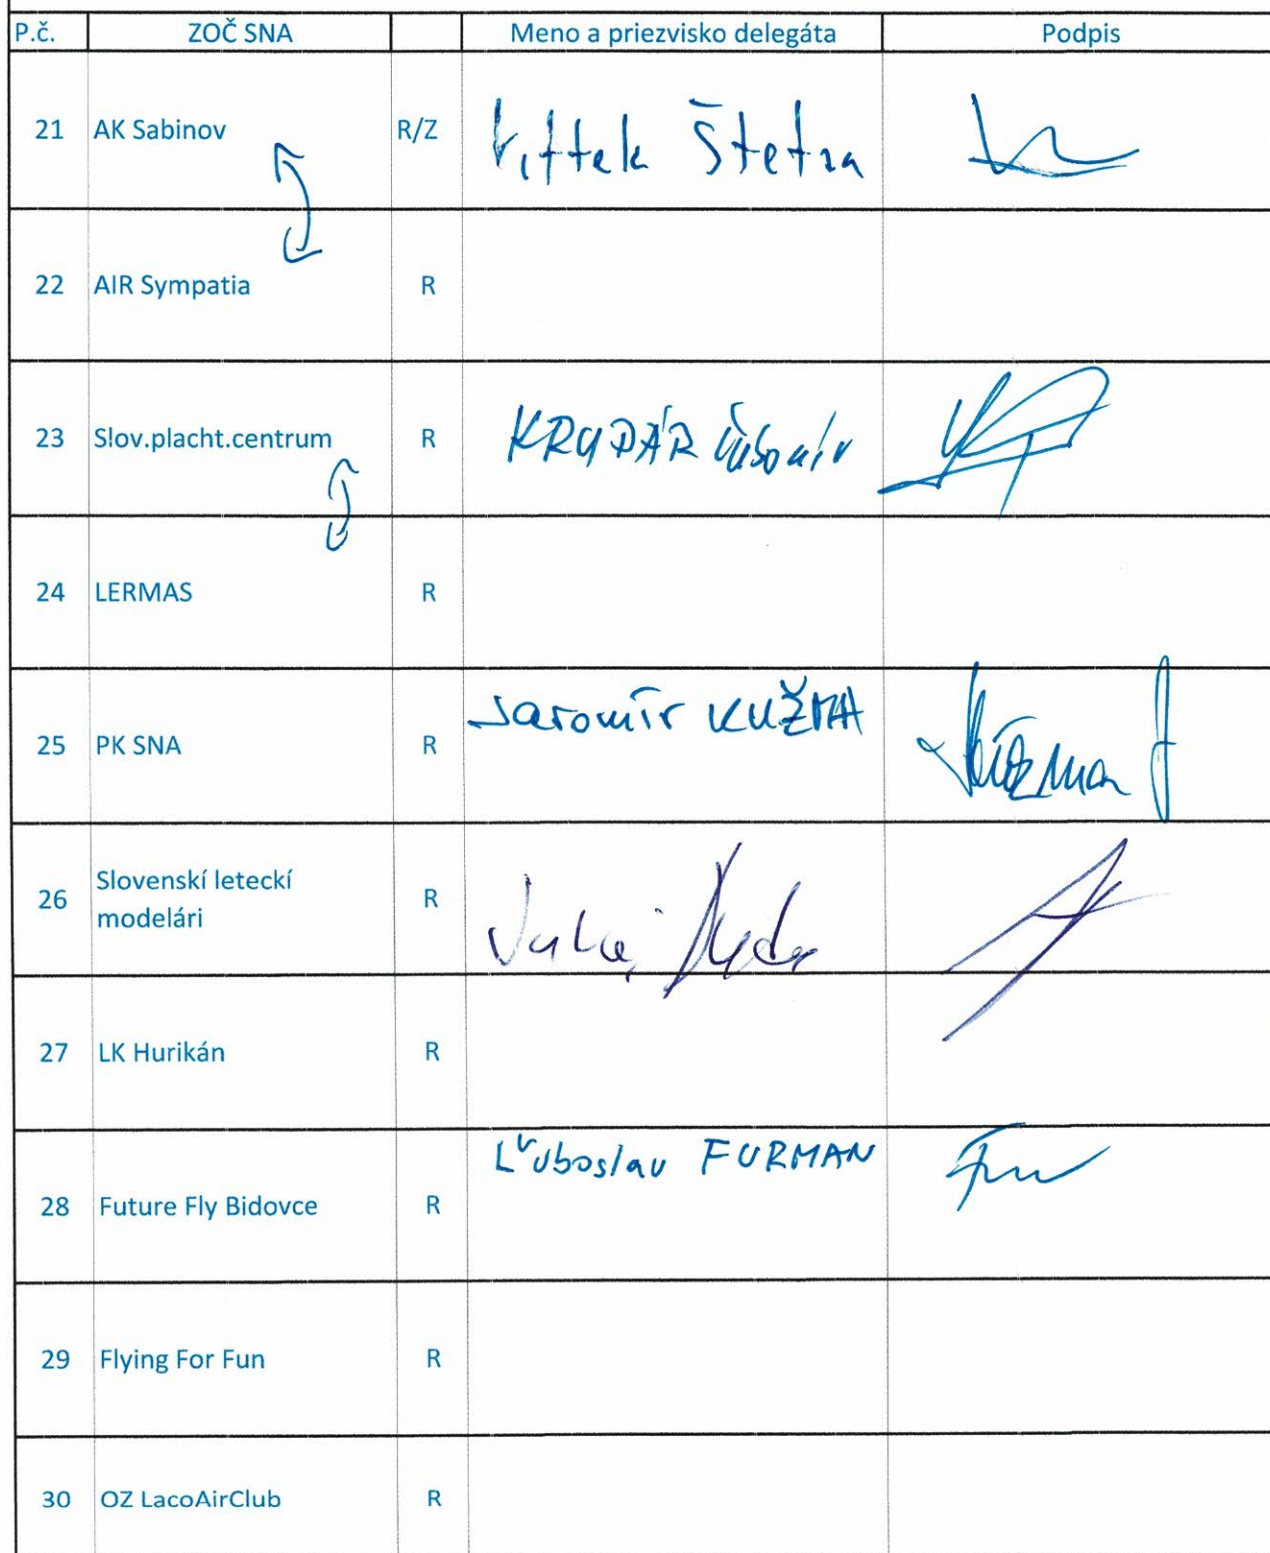 P.č. ZOČ SNA Meno a priezvisko delegáta Podpis
21 AK Sabinov R/Z Vittek Štefan
22 AIR Sympatia R
23 Slov.placht.centrum R KRUPÁR Ľubomír
24 LERMAS R
25 PK SNA R Jaromír KUŽMA Kužma J
26 Slovenskí leteckí
modelári R
27 LK Hurikán R
28 Future Fly Bidovce R Ľuboslav FURMAN
29 Flying For Fun R
30 OZ LacoAirClub R